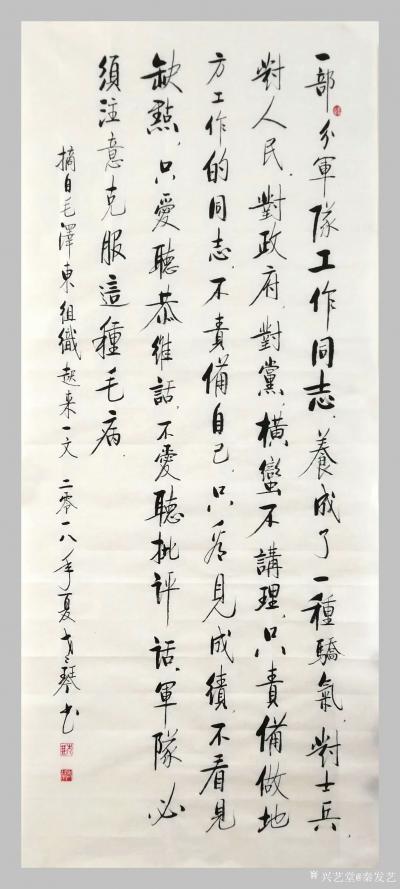 一部分軍隊工作同志，養成了一種驕氣，對士兵，
對人民，對政府，對黨，橫蠻不講理，只責備做地
方工作的同志，不責備自己，只看見成績，不看見
缺點，只愛聽恭維話，不愛聽批評話，軍隊必
須注意克服這種毛病
摘自毛澤東組織起来一文 二零一八年夏 琴书
兴艺堂@秦发艺